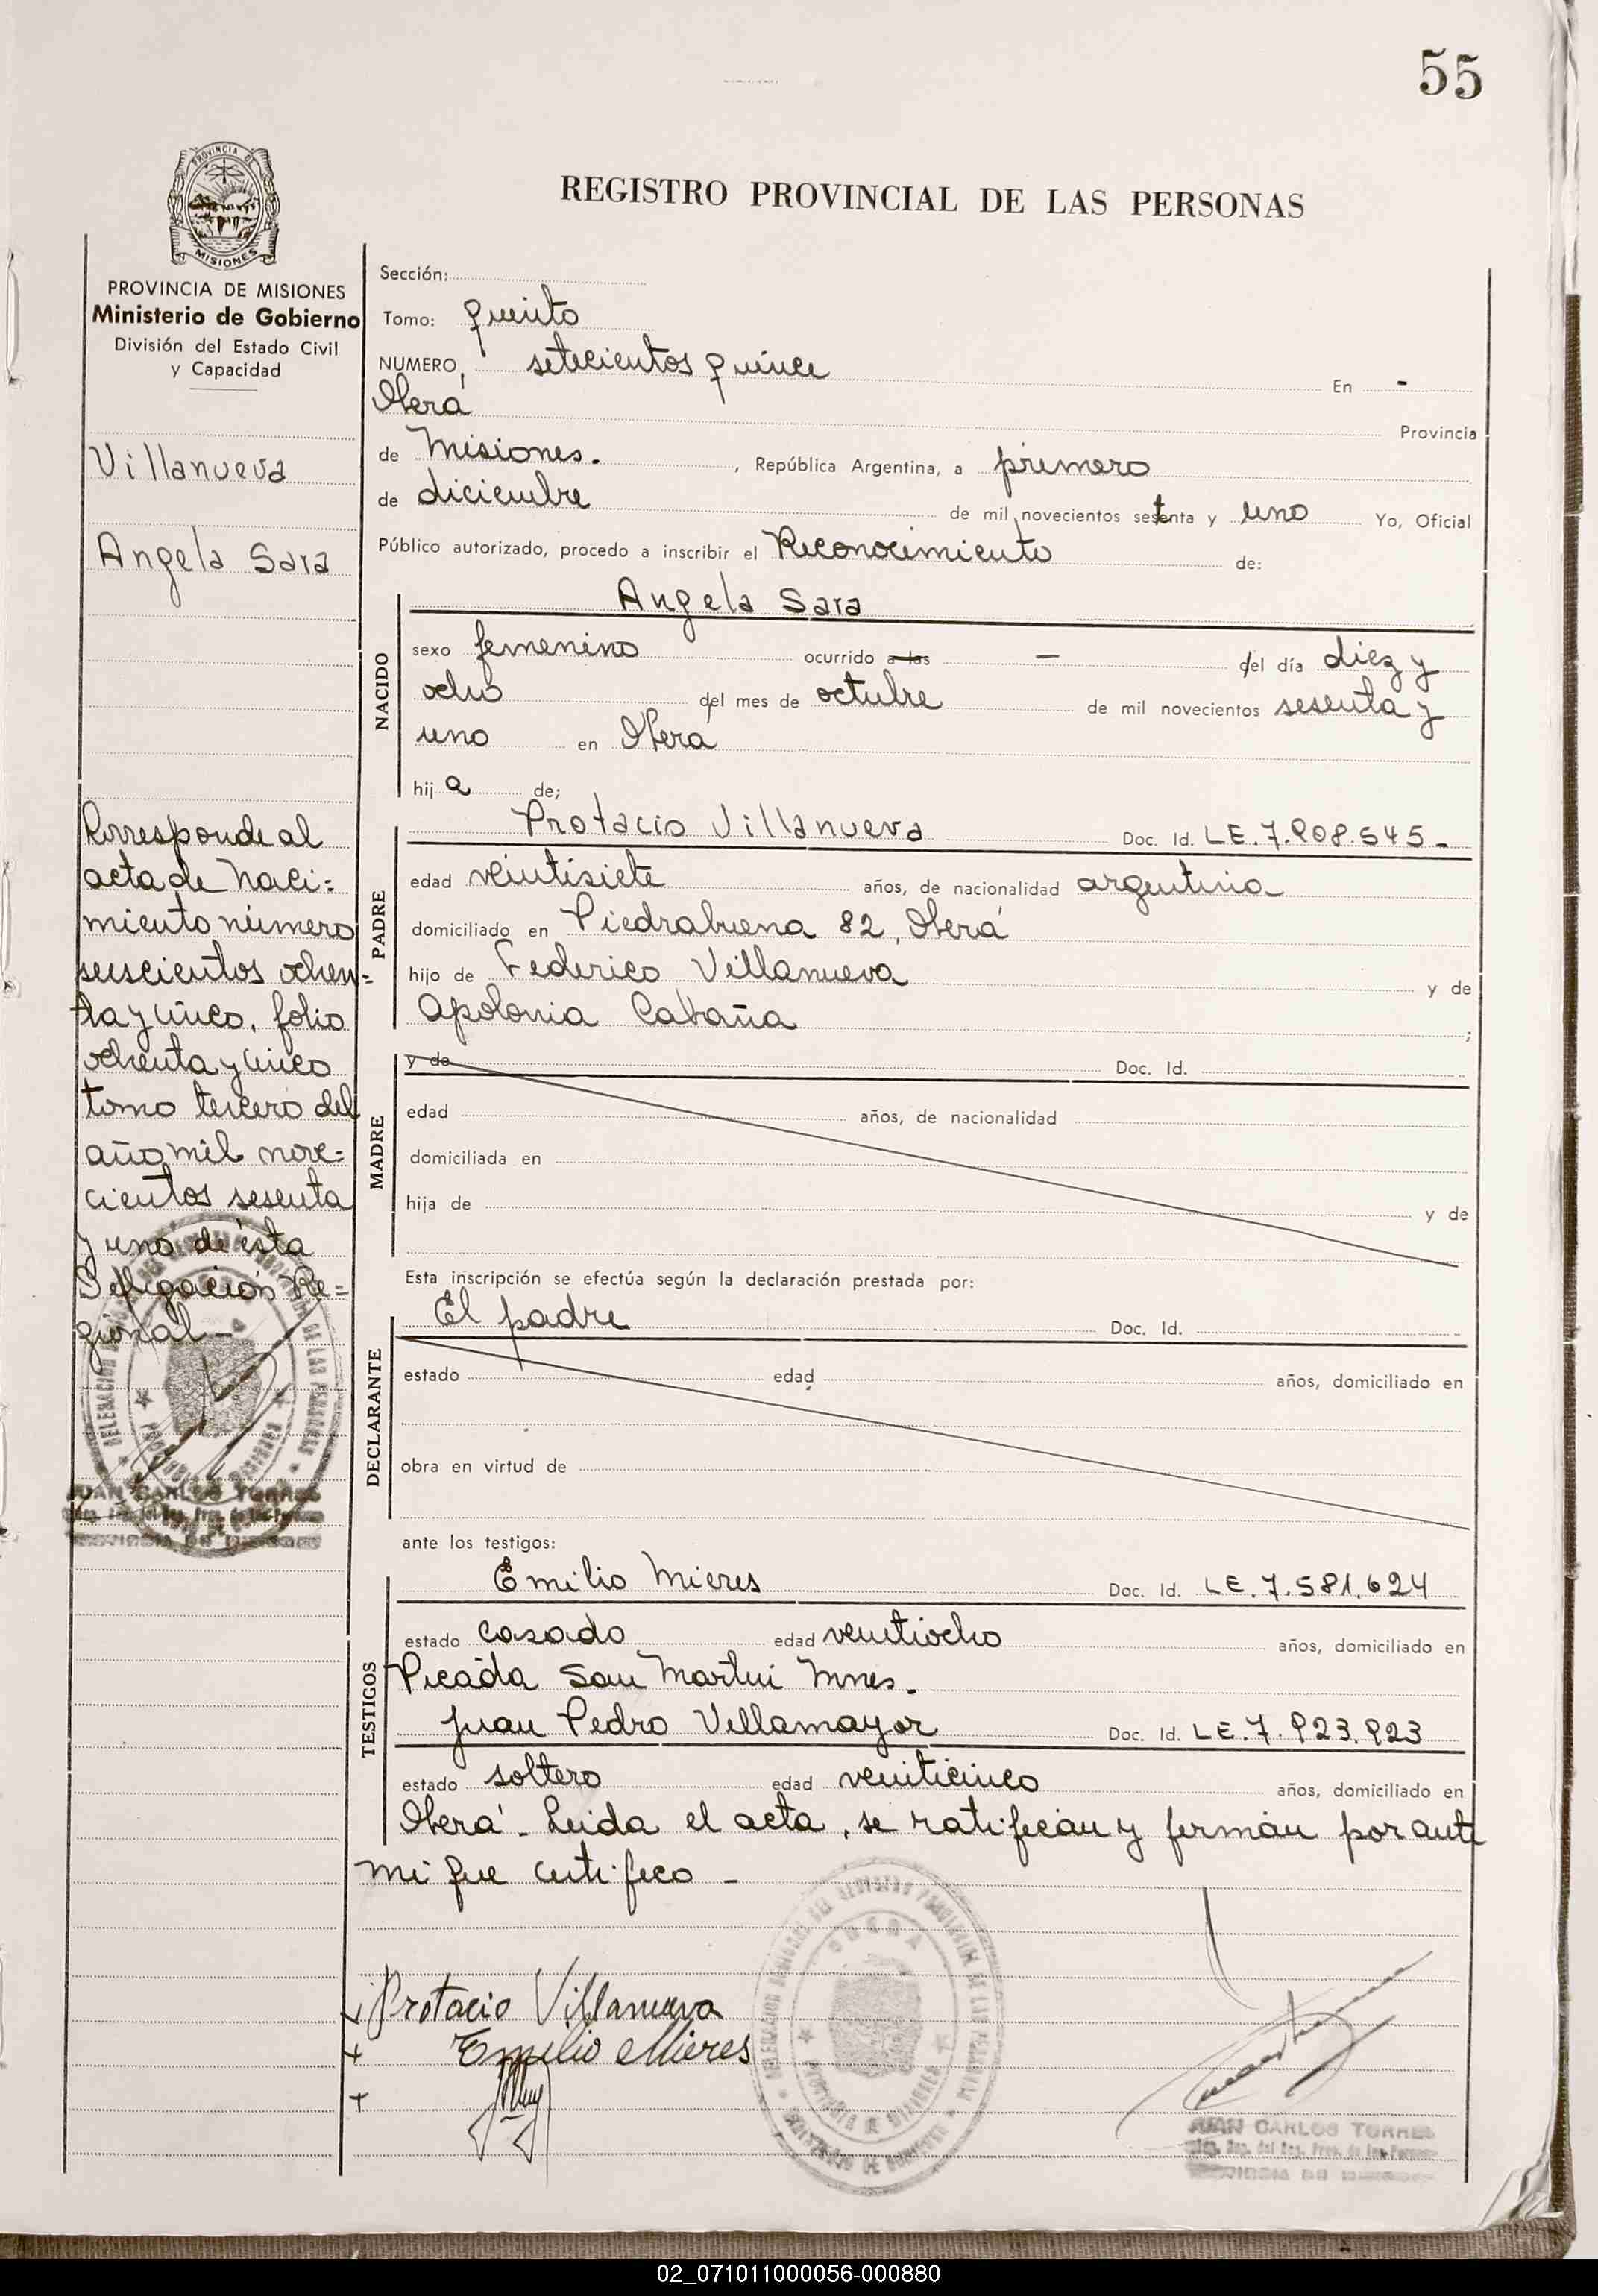 55
PROVINCIA DE
MISIONES
REGISTRO PROVINCIAL DE LAS PERSONAS
PROVINCIA DE MISIONES
Ministerio de Gobierno
División del Estado Civil
y Capacidad
Villanueva
Angela Sara
Corresponde al
acta de naci=
miento número
seiscientos ochen=
ta y cinco, folio
ochenta y cinco
tomo tercero del
año mil nove=
cientos sesenta
y uno de ésta
Delegación Re=
gional -
JUAN CARLOS TORRES
Sección:
Tomo: quinto
NUMERO, setecientos quince En -
Oberá Provincia
de Misiones. , República Argentina, a primero
de diciembre de mil novecientos setenta y uno Yo, Oficial
Público autorizado, procedo a inscribir el Reconocimiento de:
NACIDO
Angela Sara
sexo femenino ocurrido a las — del día diez y
ocho del mes de octubre de mil novecientos sesenta y
uno en Oberá
hij a de;
PADRE
Protacio Villanueva Doc. Id. LE.7.808.545-
edad veintisiete años, de nacionalidad argentina
domiciliado en Piedrabuena 82, Oberá
hijo de Federico Villanueva y de
Apolonia Cabaña ;
MADRE
y de Doc. Id.
edad años, de nacionalidad
domiciliada en
hija de y de
Esta inscripción se efectúa según la declaración prestada por:
DECLARANTE
El padre Doc. Id.
estado edad años, domiciliado en
obra en virtud de
ante los testigos:
TESTIGOS
Emilio Mieres Doc. Id. LE.7.581.624
estado casado edad veintiocho años, domiciliado en
Picada San Martin Mnes.
Juan Pedro Villamayor Doc. Id. LE.7.823.823
estado soltero edad veinticinco años, domiciliado en
Oberá - Leida el acta, se ratifican y firman por ante
mi que certifico -
Protacio Villanueva
Emilio Mieres
JUAN CARLOS TORRES
02_071011000056-000880